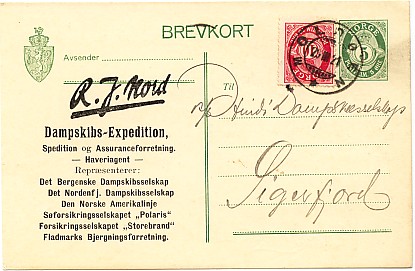 BREVKORT
Avsender
NORGE
5
R. J. Nord
Til
Dampskibs-Expedition,
Spedition og Assuranceforretning.
— Haveriagent —
Repræsenterer:
Det Bergenske Dampskibsselskap
Det Nordenfj. Dampskibsselskap
Den Norske Amerikalinje
Søforsikringsselskapet „Polaris"
Forsikringsselskapet „Storebrand"
Fladmarks Bjergningsforretning.
Dampskibsselskap
Sigerfjord